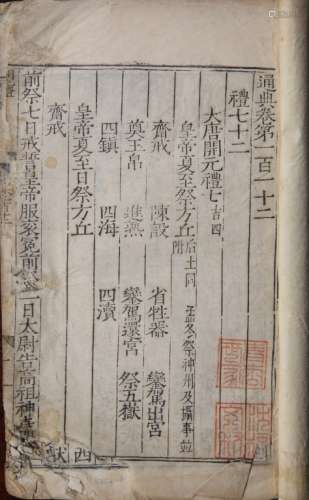 通典卷第一百一十二
禮七十二
大唐開元禮七 吉四
皇帝夏至祭方丘 后土同 孟冬祭神州及攝事並附
齋戒 陳設 省牲器 鑾駕出宮
奠玉帛 進熟 鑾駕還宮 祭五嶽
四鎮 四海 四瀆
皇帝夏至日祭方丘
齋戒
前祭七日戒誓皇帝服衮冕前 二日太尉告高祖神